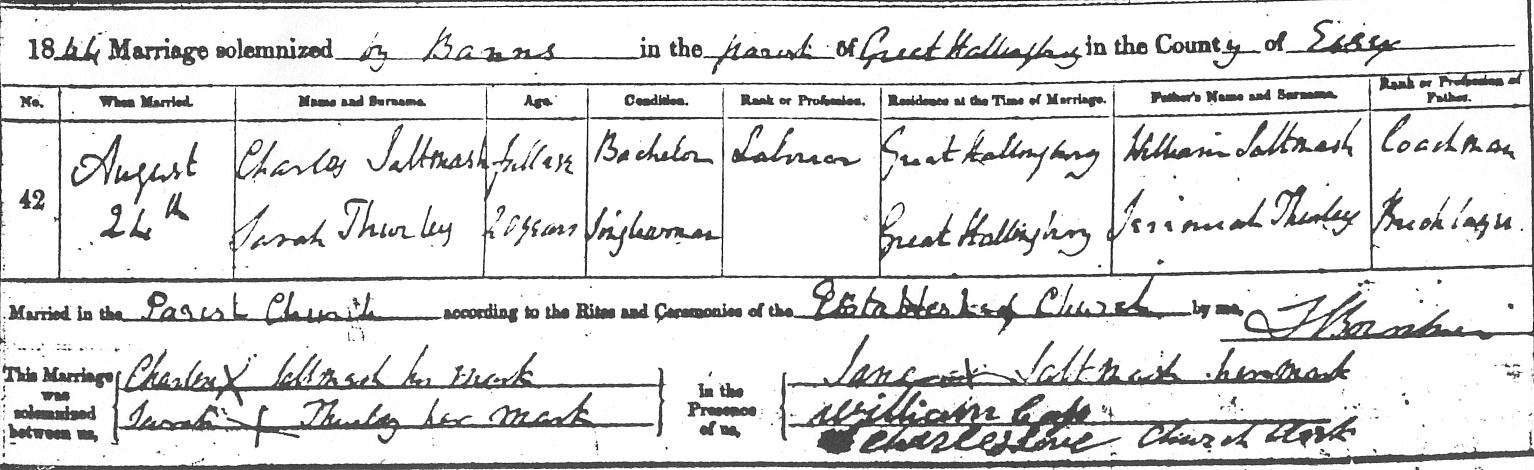 1844 Marriage solemnized by Banns in the parish of Great Hallingbury in the County of Essex
No. When Married. Name and Surname. Age. Condition. Rank or Profession. Residence at the Time of Marriage. Father's Name and Surname. Rank or Profession of Father.
42 August 24th Charles Saltmash full age Bachelor Labourer Great Hallingbury William Saltmash Coachman
Sarah Thurley 20 years Singlewoman Great Hallingbury Jeremiah Thurley Bricklayer
Married in the Parish Church according to the Rites and Ceremonies of the Established Church by me,
This Marriage was solemnized between us, Charles X Saltmash his mark In the Presence of us, Jane X Saltmash her mark
Sarah X Thurley her mark William
Charles Church Clerk